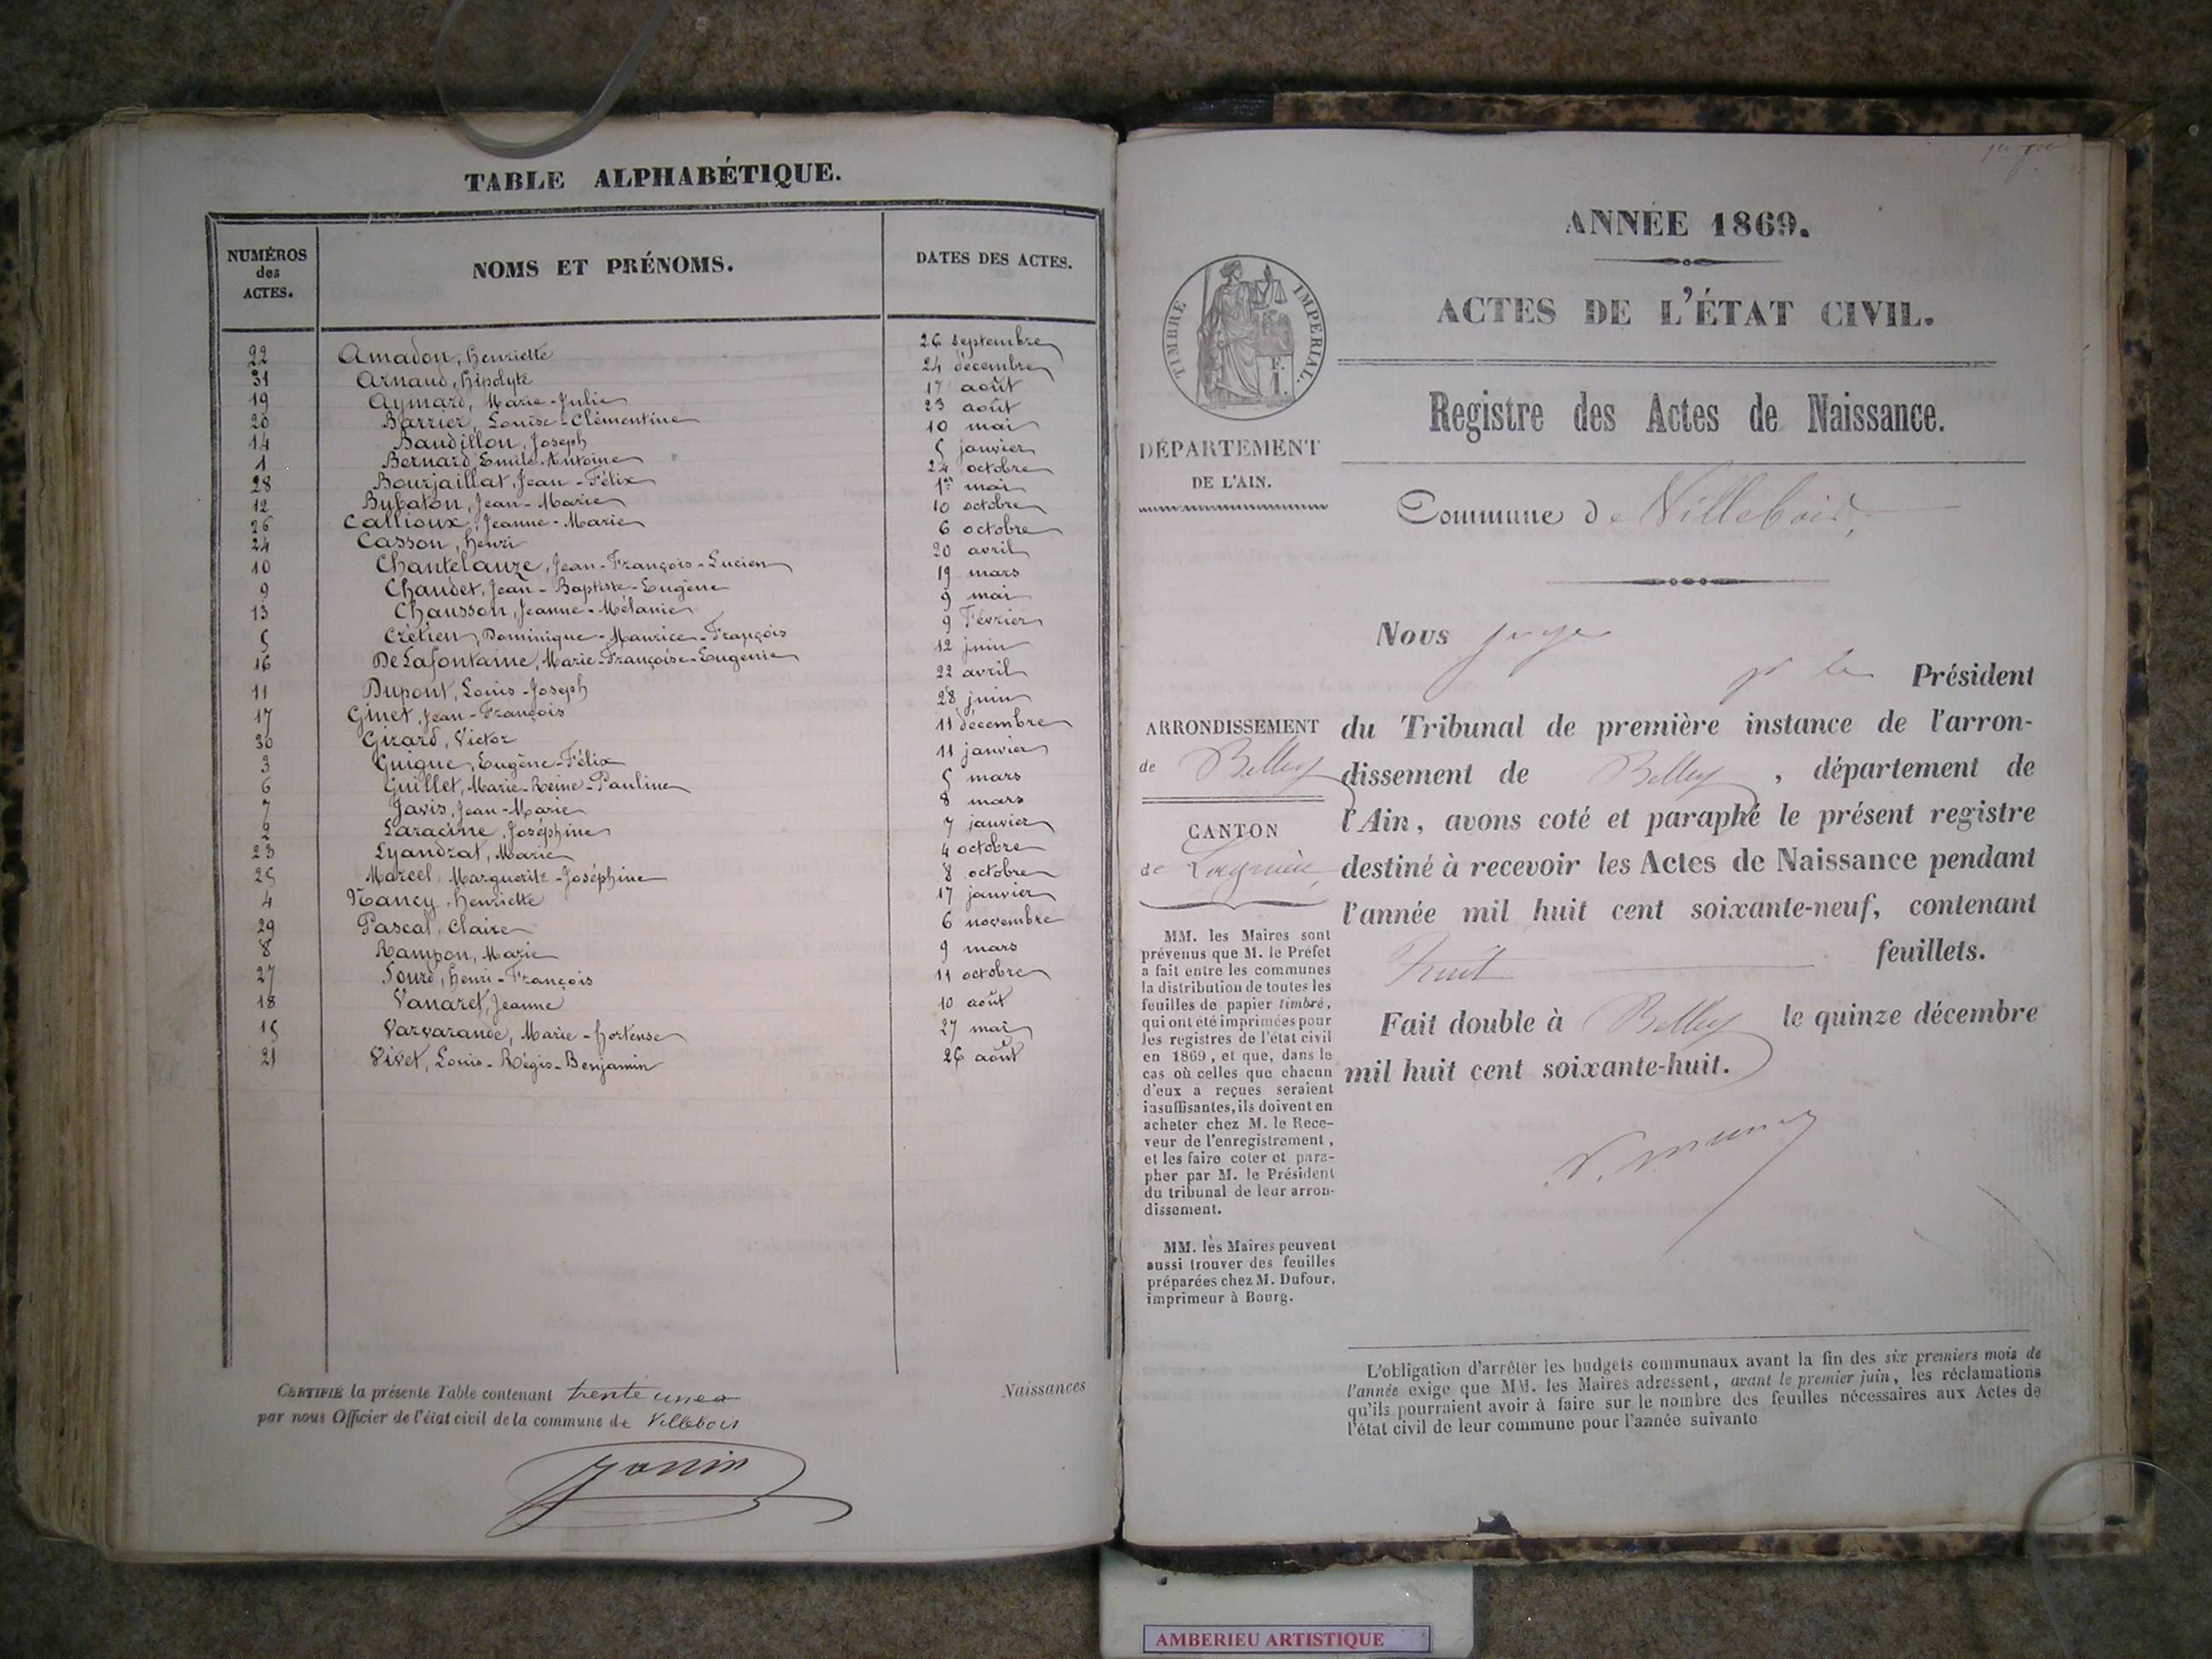 TABLE ALPHABÉTIQUE.
NUMÉROS des ACTES. NOMS ET PRÉNOMS. DATES DES ACTES.
22 Amadon, Henriette 26 septembre
31 Arnaud, Hipolyte 24 décembre
19 Aymard, Marie-Julie 17 août
20 Barrier, Louise-Clémentine 23 août
14 Baudillon, Joseph 10 mai
1 Bernard, Emile-Antoine 5 janvier
28 Bourjaillat, Jean-Félix 24 octobre
12 Bybaton, Jean-Marie 1er mai
26 Callioux, Jeanne-Marie 10 octobre
24 Casson, Henri 6 octobre
10 Chantelauze, Jean-François-Lucien 20 avril
9 Chaudet, Jean-Baptiste-Eugène 19 mars
13 Chausson, Jeanne-Mélanie 9 mai
5 Crétien, Dominique-Maurice-François 9 Février
16 DeLafontaine, Marie-Françoise-Eugénie 12 juin
11 Dupont, Louis-Joseph 22 avril
17 Ginet, Jean-François 28 juin
30 Girard, Victor 11 décembre
3 Guigue, Eugène-Félix 11 janvier
6 Guillet, Marie-Reine-Pauline 5 mars
7 Javis, Jean-Marie 8 mars
2 Laracine, Joséphine 7 janvier
23 Lyandrat, Marie 4 octobre
25 Marcel, Marguerite-Joséphine 8 octobre
4 Nancy, Henriette 17 janvier
29 Pascal, Claire 6 novembre
8 Rampon, Marie 9 mars
27 Sourd, Henri-François 11 octobre
18 Vanaret, Jeanne 10 août
15 Varvarande, Marie-Hortense 27 mai
21 Vivet, Louis-Régis-Benjamin 26 août
CERTIFIÉ la présente Table contenant trente unea
par nous Officier de l'état civil de la commune de Villebois
Naissances
Janin
ANNÉE 1869.
ACTES DE L'ÉTAT CIVIL.
TIMBRE IMPERIAL.
1 F.
Registre des Actes de Naissance.
DÉPARTEMENT
DE L'AIN.
Commune de Villebois,
Nous juge
pr le Président
ARRONDISSEMENT
de Belley
CANTON
de Lagnieu,
du Tribunal de première instance de l'arron-
dissement de Belley, département de
l'Ain, avons coté et paraphé le présent registre
destiné à recevoir les Actes de Naissance pendant
l'année mil huit cent soixante-neuf, contenant
huit feuillets.
Fait double à Belley le quinze décembre
mil huit cent soixante-huit.
MM. les Maires sont
prévenus que M. le Préfet
a fait entre les communes
la distribution de toutes les
feuilles de papier timbré,
qui ont été imprimées pour
les registres de l'état civil
en 1869, et que, dans le
cas où celles que chacun
d'eux a reçues seraient
insuffisantes, ils doivent en
acheter chez M. le Rece-
veur de l'enregistrement,
et les faire coter et para-
pher par M. le Président
du tribunal de leur arron-
dissement.
MM. les Maires peuvent
aussi trouver des feuilles
préparées chez M. Dufour,
imprimeur à Bourg.
L'obligation d'arrêter les budgets communaux avant la fin des six premiers mois de
l'année exige que MM. les Maires adressent, avant le premier juin, les réclamations
qu'ils pourraient avoir à faire sur le nombre des feuilles nécessaires aux Actes de
l'état civil de leur commune pour l'année suivante
AMBERIEU ARTISTIQUE